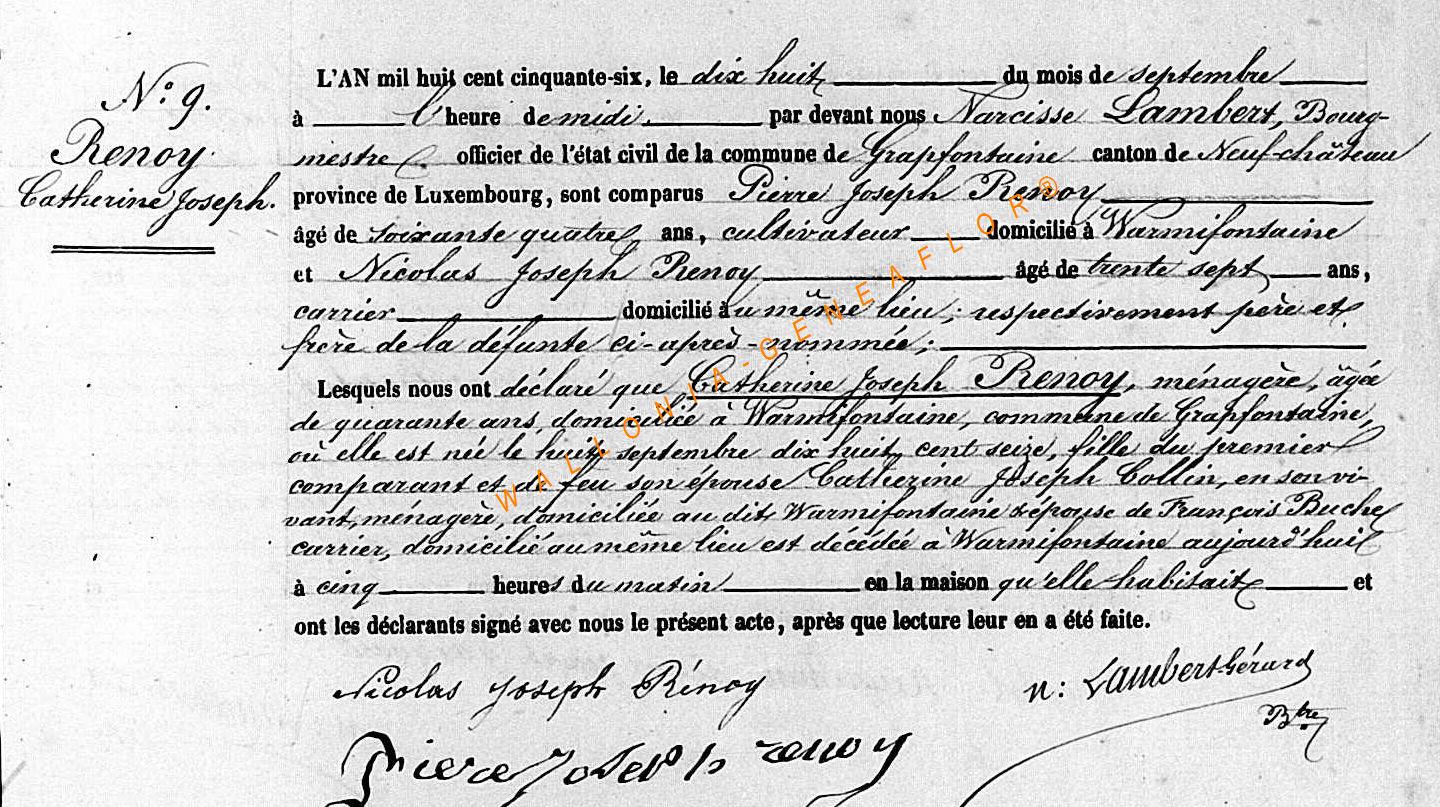 N.º 9.
Renoy
Catherine Joseph.
L'AN mil huit cent cinquante-six, le dix huit du mois de septembre
à l'heure de midi. par devant nous Narcisse Lambert, Bourg-
mestre officier de l'état civil de la commune de Grapfontaine canton de Neufchâteau
province de Luxembourg, sont comparus Pierre Joseph Renoy
âgé de soixante quatre ans, cultivateur domicilié à Warmifontaine
et Nicolas Joseph Renoy âgé de trente sept ans,
carrier domicilié au même lieu; respectivement père et
frère de la défunte ci-après-nommée;
Lesquels nous ont déclaré que Catherine Joseph Renoy, ménagère, âgée
de quarante ans, domiciliée à Warmifontaine, commune de Grapfontaine,
où elle est née le huit septembre dix huit cent seize, fille du premier
comparant et de feu son épouse Catherine Joseph Collin, en son vi-
vant, ménagère, domiciliée au dit Warmifontaine & épouse de François Buche
carrier, domicilié au même lieu est décédée à Warmifontaine aujourd'hui
à cinq heures du matin en la maison qu'elle habitait et
ont les déclarants signé avec nous le présent acte, après que lecture leur en a été faite.
Nicolas Joseph Rénoy
n: Lambert Gérard
Btre
Pierre Joseph renoy
WALLONIA-GENEAFLOR®